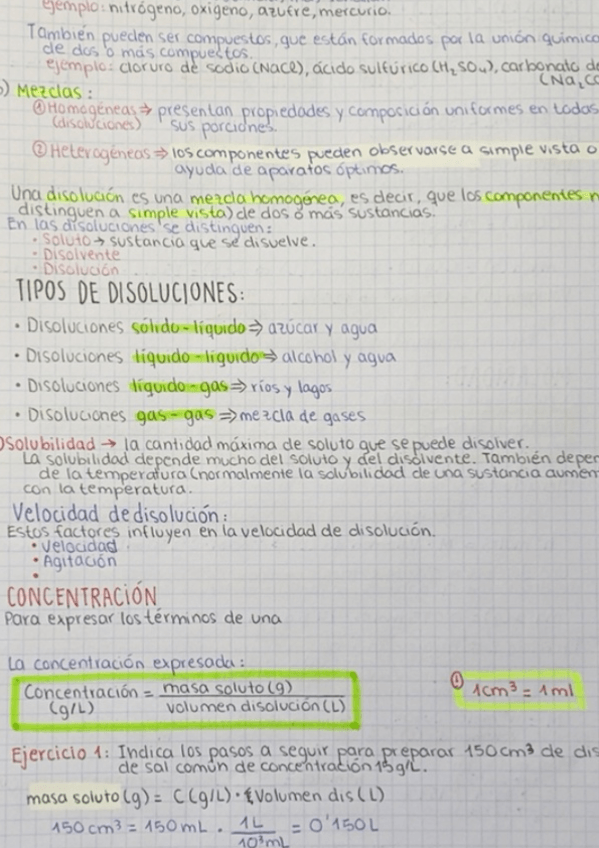 ejemplo: nitrógeno, oxígeno, azufre, mercurio.
También pueden ser compuestos, que están formados por la unión química
de dos o más compuestos.
ejemplo: cloruro de sodio (NaCl), ácido sulfúrico (H₂SO₄), carbonato de
(Na₂CO
) Mezclas:
① Homogéneas ⇒ presentan propiedades y composición uniformes en todas
(disoluciones) sus porciones.
② Heterogéneas ⇒ los componentes pueden observarse a simple vista o
ayuda de aparatos óptimos.
Una disolución es una mezcla homogénea, es decir, que los componentes n
distinguen a simple vista) de dos o más sustancias.
En las disoluciones se distinguen:
· Soluto → sustancia que se disuelve.
· Disolvente
· Disolución
TIPOS DE DISOLUCIONES:
· Disoluciones sólido-líquido ⇒ azúcar y agua
· Disoluciones líquido-líquido ⇒ alcohol y agua
· Disoluciones líquido-gas ⇒ ríos y lagos
· Disoluciones gas-gas ⇒ mezcla de gases
) Solubilidad → la cantidad máxima de soluto que se puede disolver.
La solubilidad depende mucho del soluto y del disolvente. También depen
de la temperatura (normalmente la solubilidad de una sustancia aumen
con la temperatura.
Velocidad de disolución:
Estos factores influyen en la velocidad de disolución.
· Velocidad
· Agitación
·
CONCENTRACIÓN
Para expresar los términos de una
La concentración expresada:
Concentración = masa soluto (g)
(g/L) volumen disolución (L)
① 1cm³ = 1ml
Ejercicio 1: Indica los pasos a seguir para preparar 150cm³ de dis
de sal común de concentración 15g/L.
masa soluto (g) = C(g/L) · Volumen dis (L)
150 cm³ = 150 mL · 1L / 10³mL = 0'150L